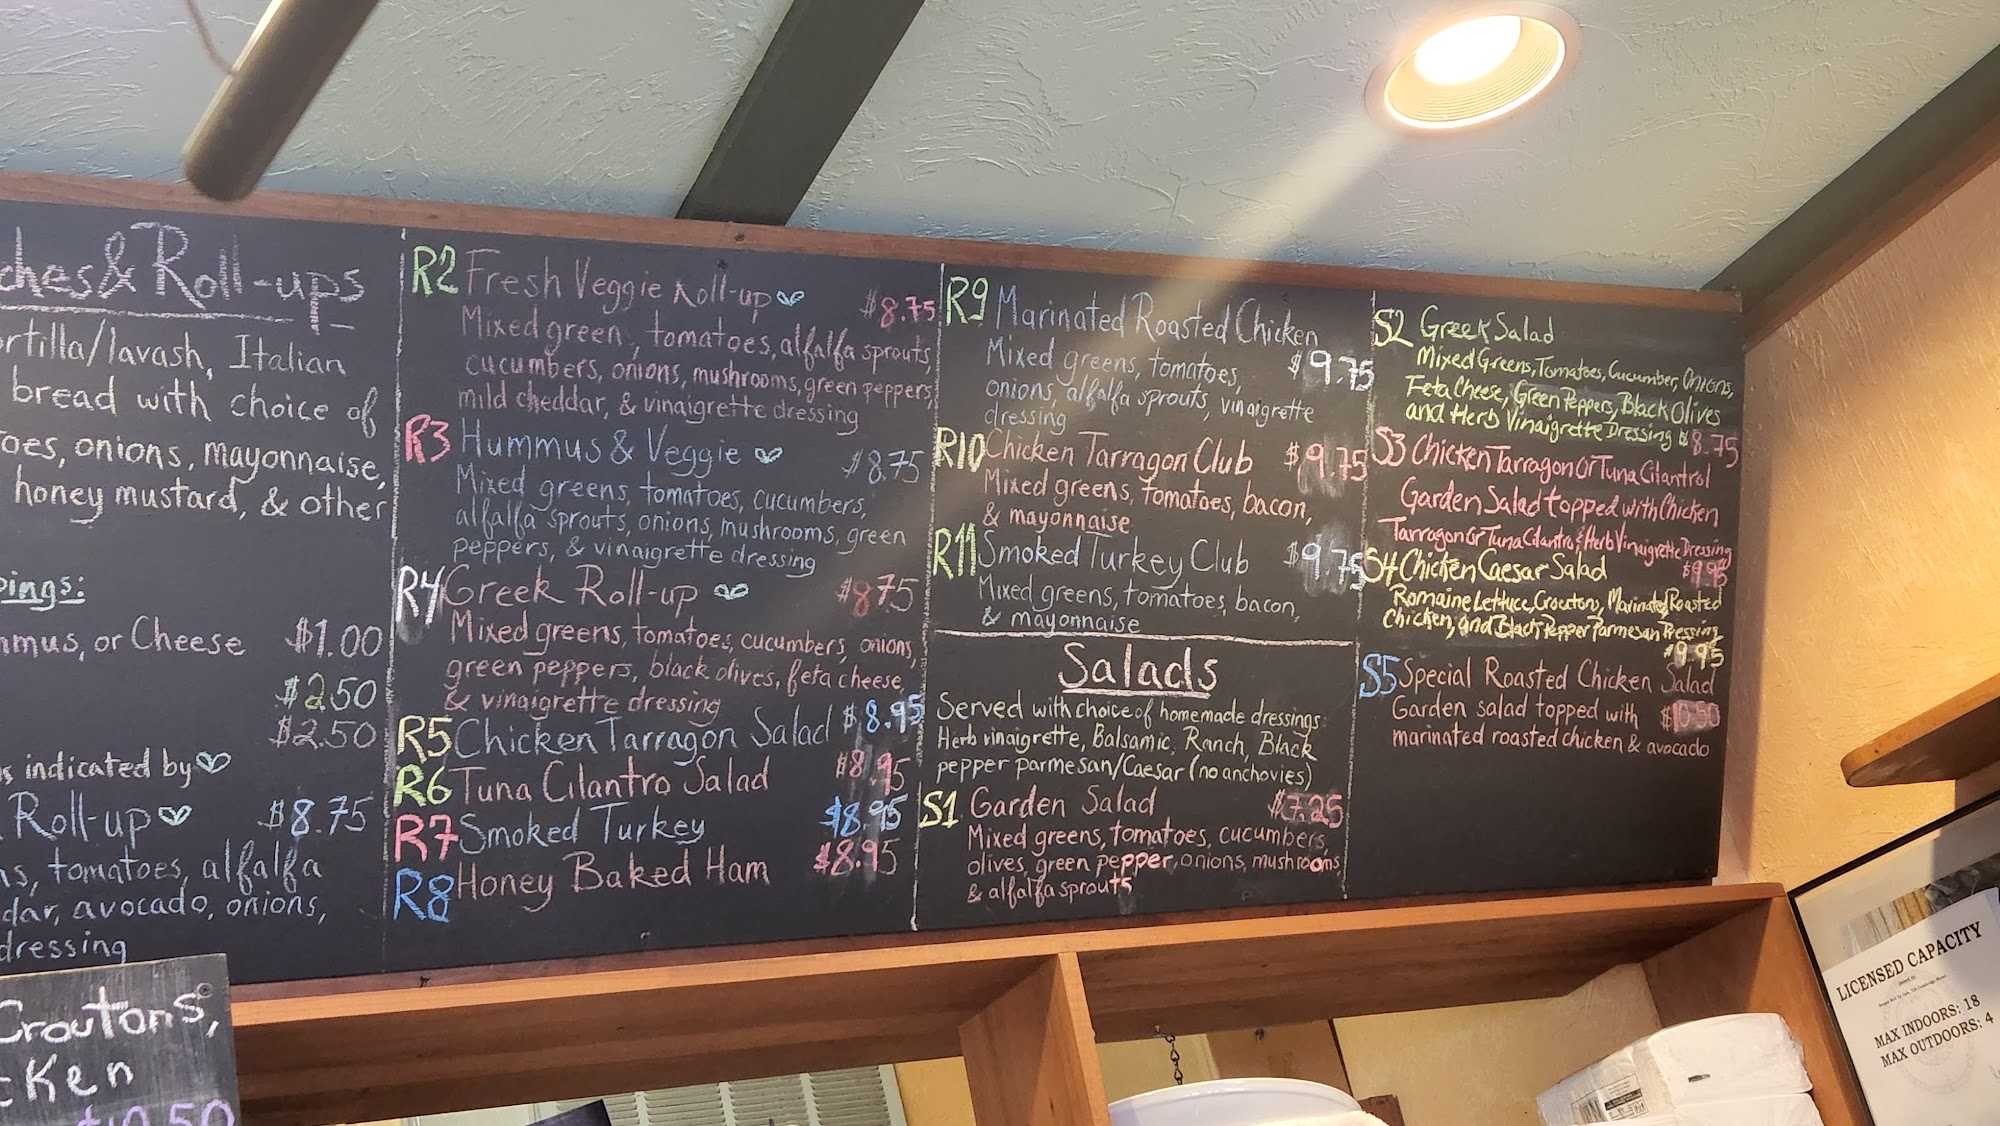 ches & Roll-ups
rtilla/lavash, Italian
bread with choice of
oes, onions, mayonnaise,
honey mustard, & other
pings:
mmus, or Cheese $1.00
$2.50
$2.50
s indicated by
Roll-up $8.75
ns, tomatoes, alfalfa
dar, avocado, onions,
dressing
Croutons,
cken
$10.50
R2 Fresh Veggie Roll-up $8.75
Mixed green, tomatoes, alfalfa sprouts,
cucumbers, onions, mushrooms, green peppers,
mild cheddar, & vinaigrette dressing
R3 Hummus & Veggie $8.75
Mixed greens, tomatoes, cucumbers,
alfalfa sprouts, onions, mushrooms, green
peppers, & vinaigrette dressing
R4 Greek Roll-up $8.75
Mixed greens, tomatoes, cucumbers, onions,
green peppers, black olives, feta cheese,
& vinaigrette dressing
R5 Chicken Tarragon Salad $8.95
R6 Tuna Cilantro Salad $8.95
R7 Smoked Turkey $8.95
R8 Honey Baked Ham $8.95
R9 Marinated Roasted Chicken
Mixed greens, tomatoes, $9.75
onions, alfalfa sprouts, vinaigrette
dressing
R10 Chicken Tarragon Club $9.75
Mixed greens, tomatoes, bacon,
& mayonnaise
R11 Smoked Turkey Club $9.75
Mixed greens, tomatoes, bacon,
& mayonnaise
Salads
Served with choice of homemade dressings:
Herb vinaigrette, Balsamic, Ranch, Black
pepper parmesan/Caesar (no anchovies)
S1 Garden Salad $7.25
Mixed greens, tomatoes, cucumbers,
olives, green pepper, onions, mushrooms,
& alfalfa sprouts
S2 Greek Salad
Mixed Greens, Tomatoes, Cucumber, Onions,
Feta Cheese, Green Peppers, Black Olives
and Herb Vinaigrette Dressing $8.75
S3 Chicken Tarragon Or Tuna Cilantrol
Garden Salad topped with Chicken
Tarragon or Tuna Cilantro & Herb Vinaigrette Dressing
$9.95
S4 Chicken Caesar Salad
Romaine Lettuce, Croutons, Marinated Roasted
Chicken, and Black Pepper Parmesan Dressing
$9.95
S5 Special Roasted Chicken Salad
Garden salad topped with $10.50
marinated roasted chicken & avocado
LICENSED CAPACITY
MAX INDOORS: 18
MAX OUTDOORS: 4